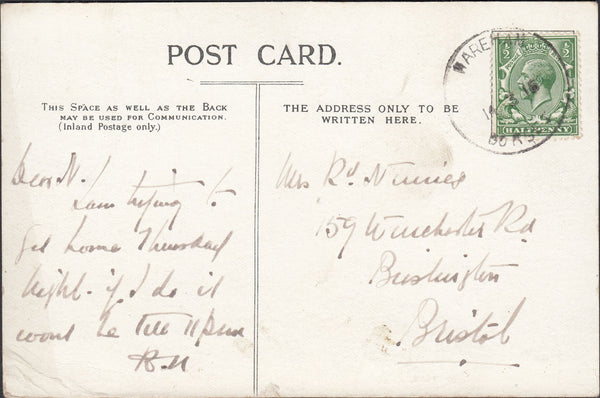 POST CARD.
THIS SPACE AS WELL AS THE BACK
MAY BE USED FOR COMMUNICATION.
(Inland Postage only.)
THE ADDRESS ONLY TO BE
WRITTEN HERE.
WAREHAM
14
1/2
1/2
HALFPENNY
Dear N.
I am trying to
get home Thursday
Night - if I do it
wont be till 11 pm
R.N
Mrs Rd
159 Winchester Rd
Brislington
Bristol